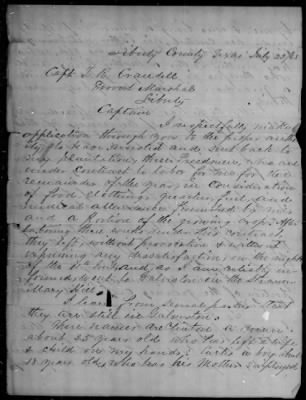 Liberty County Texas July 22/65
Capt J. R. Crandell
Provost Marshal
Liberty
Captain
I respectfully make
application through you to the proper author
ity to have arrested and sent back to
my plantation, three Freedmen, who are
under Contract to labor for me for the
remainder of the year, in consideration
of food, clothing, quarters, fuel, and
medical attendance furnished by me
and a portion of the growing crop. Af
ter being there under this contract
they left, without provocation & without
expressing any dissatisfaction on the night
of the and as I am reliably in
formed went to Galveston on the Steamer
Mary Hill.
I learn from Several persons that
they are still in Galveston.
Their names are Clinton a man
about 25 years old who has left a wife
& child on my hands; a boy about
18 years old, who has his Mother